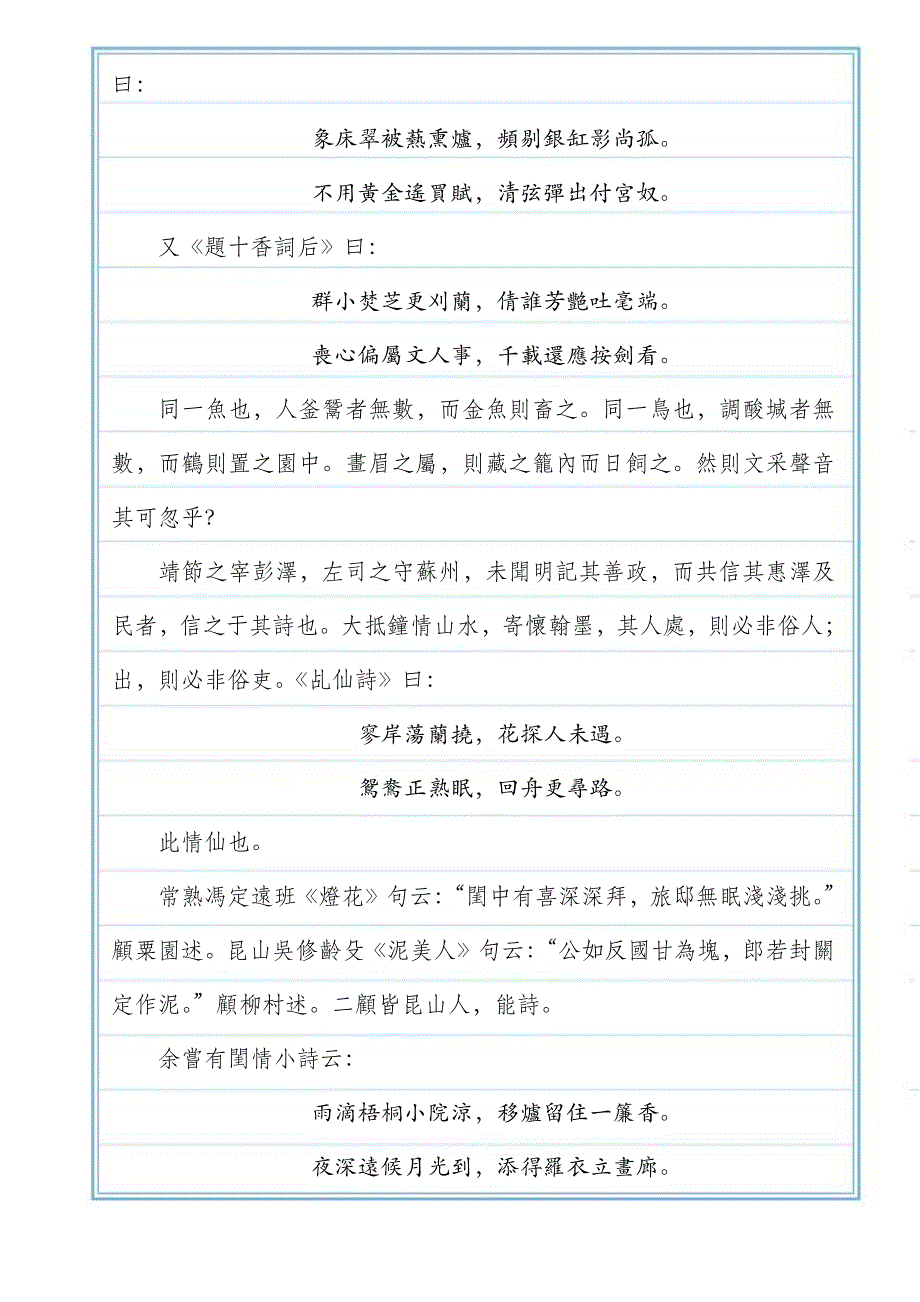 曰：
象床翠被爇熏爐，頻剔銀缸影尚孤。
不用黃金遙買賦，清弦彈出付宮奴。
又《題十香詞后》曰：
群小焚芝更刈蘭，倩誰芳艷吐毫端。
喪心偏屬文人事，千載還應按劍看。
同一魚也，人釜鬵者無數，而金魚則畜之。同一鳥也，調酸堿者無
數，而鶴則置之園中。畫眉之屬，則藏之籠內而日飼之。然則文采聲音
其可忽乎？
靖節之宰彭澤，左司之守蘇州，未聞明記其善政，而共信其惠澤及
民者，信之于其詩也。大抵鐘情山水，寄懷翰墨，其人處，則必非俗人；
出，則必非俗吏。《乩仙詩》曰：
寥岸蕩蘭撓，花探人未過。
鴛鴦正熟眠，回舟更尋路。
此情仙也。
常熟馮定遠班《燈花》句云：“閨中有喜深深拜，旅邸無眠淺淺挑。”
顧粟園述。昆山吳修齡殳《泥美人》句云：“公如反國甘為塊，郎若封關
定作泥。” 顧柳村述。二顧皆昆山人，能詩。
余嘗有閨情小詩云：
雨滴梧桐小院涼，移爐留住一簾香。
夜深遠候月光到，添得羅衣立畫廊。